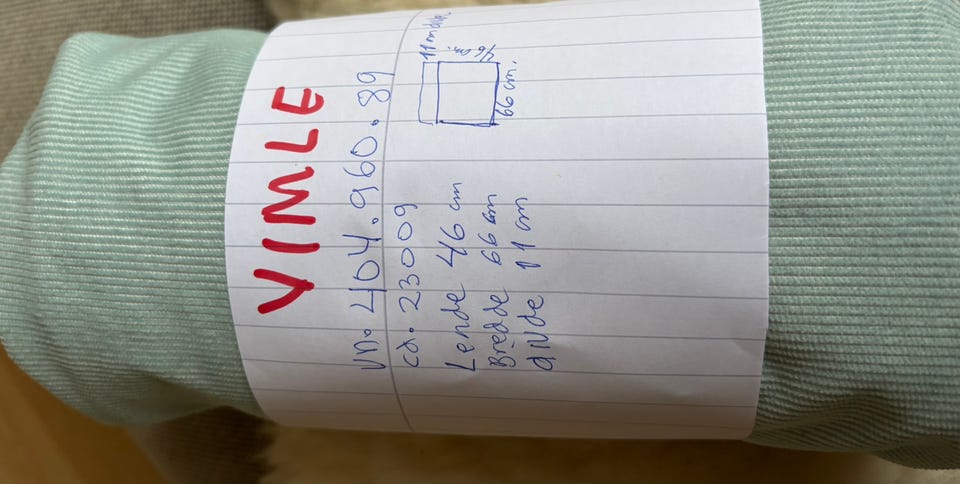 VIMLE
vn. 404.960.89
cd. 23009
11 m dybde
46 cm.
66 cm.
Lende 46 cm
Bredde 66 cm
dybde 11 cm